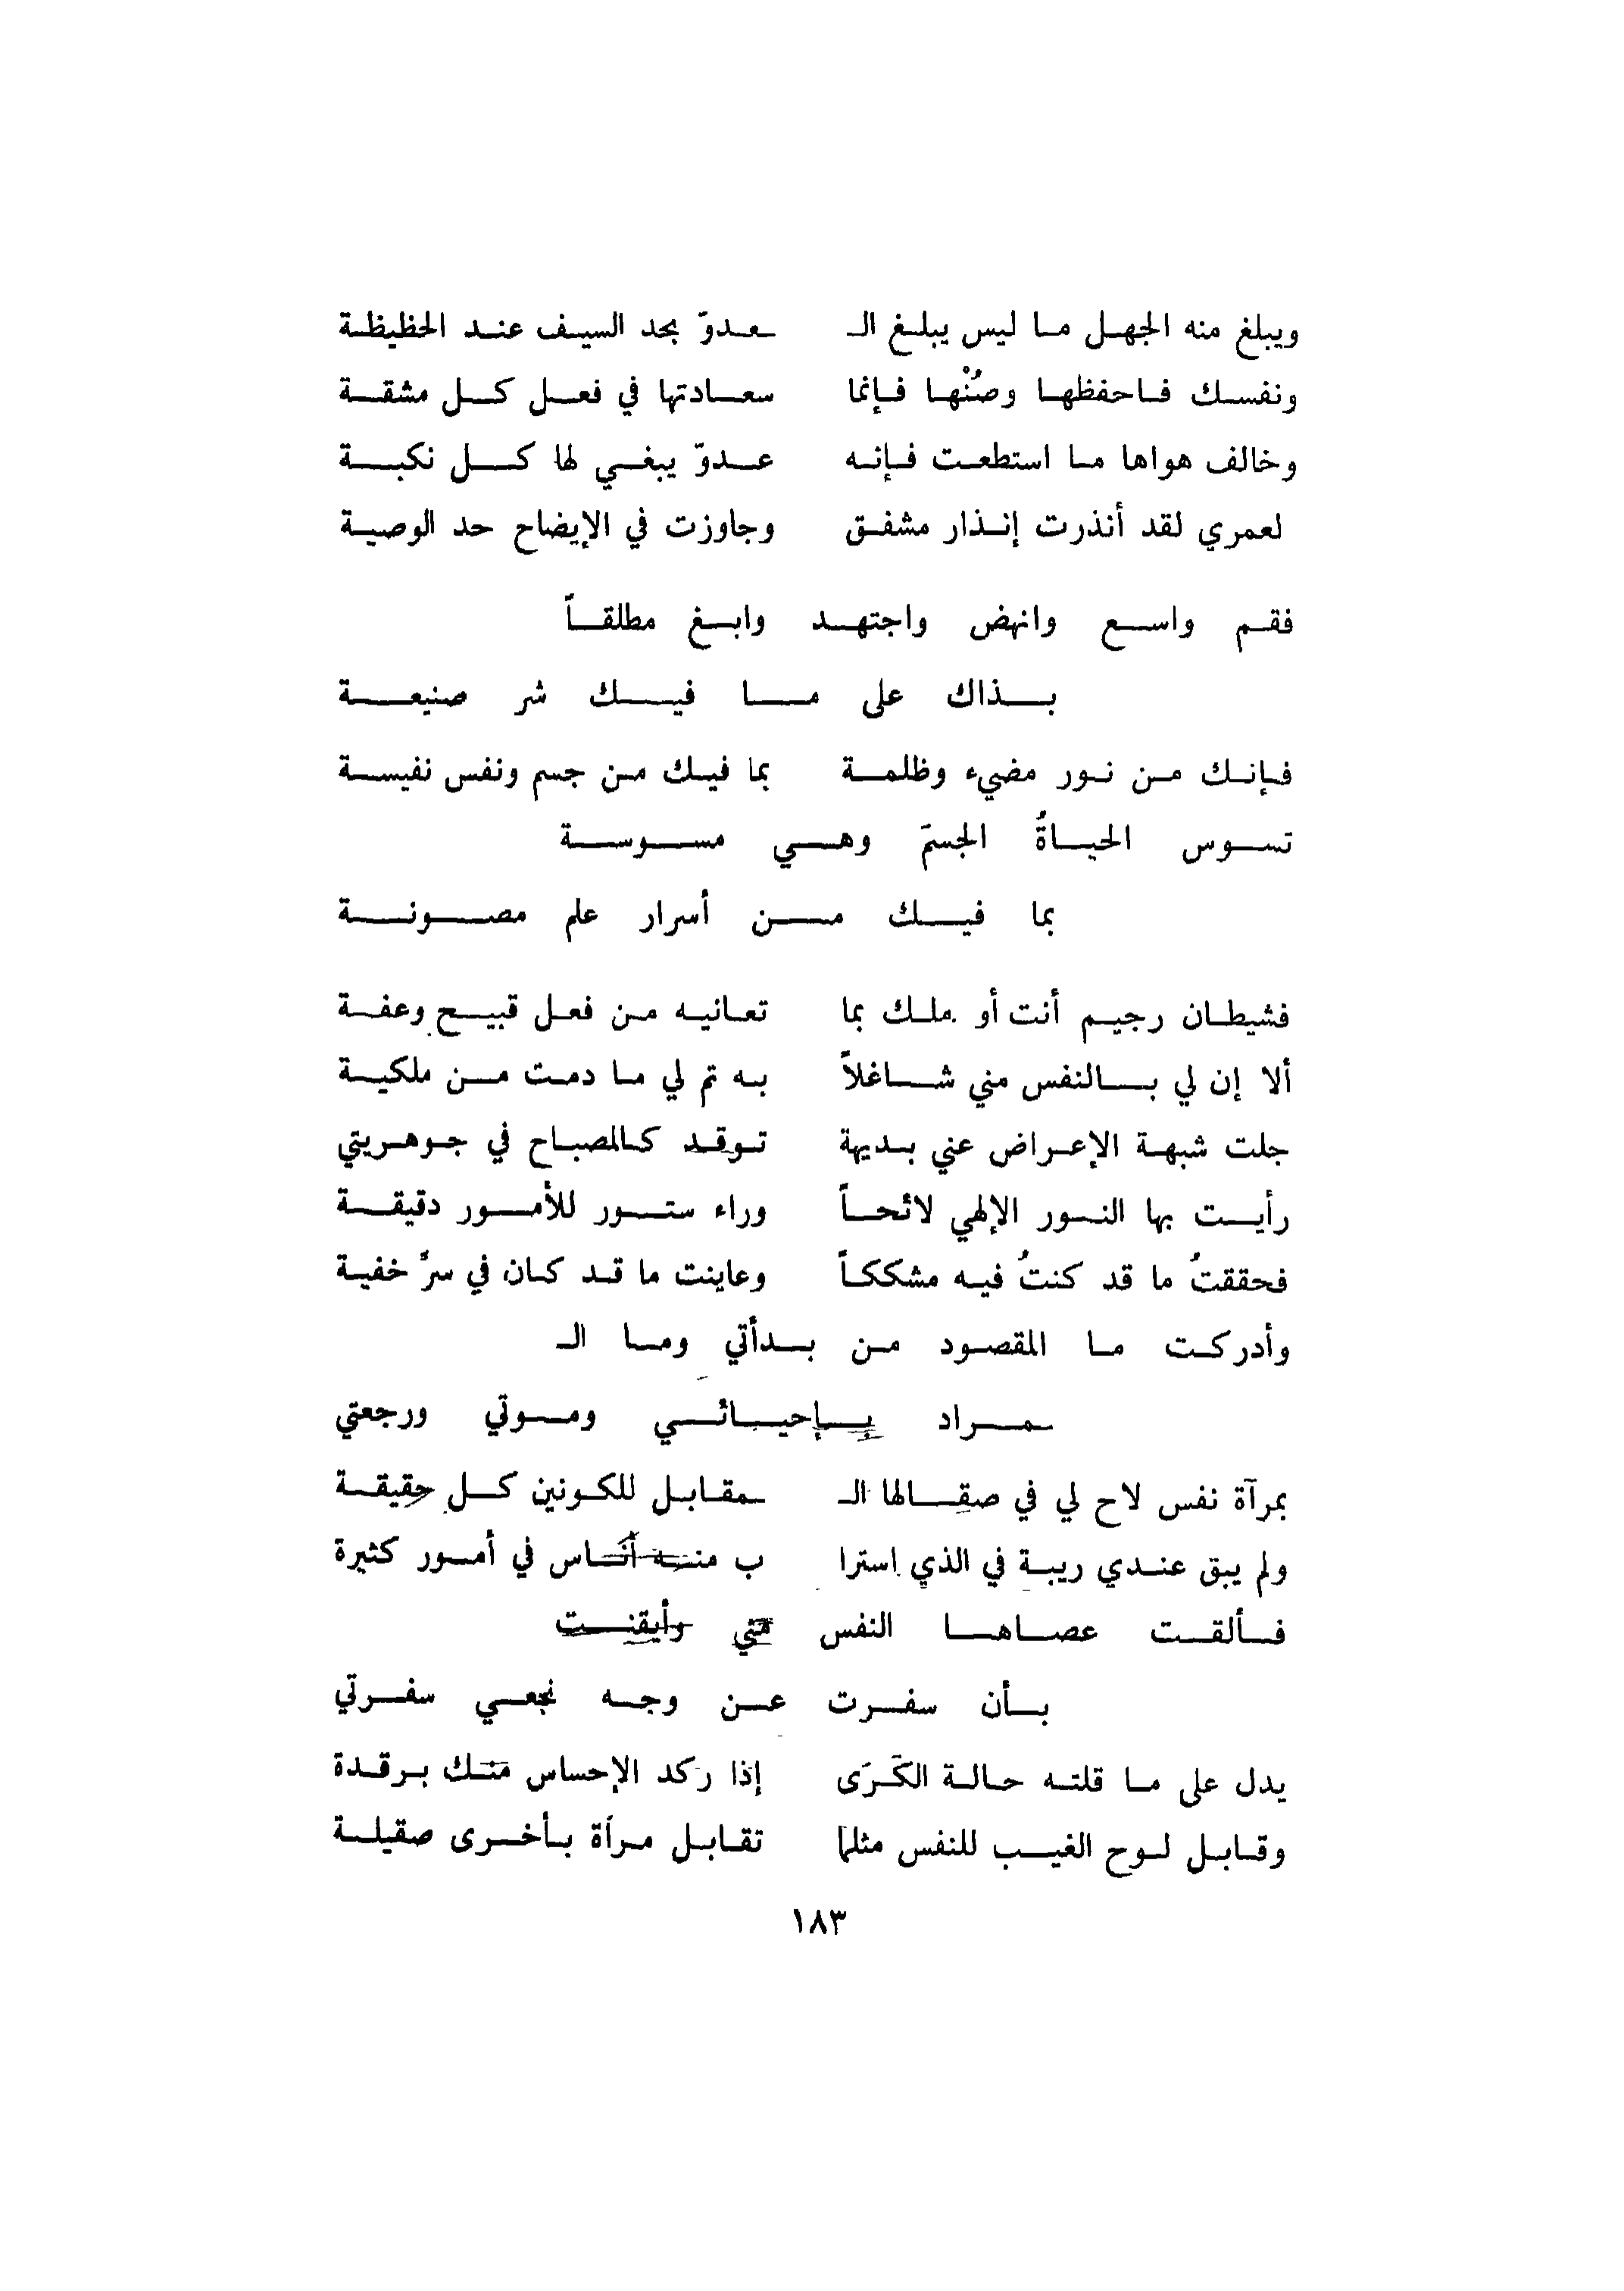 ويبلغ منه الجهل ما ليس يبلغ الـ ـعدوّ بحد السيف عند الحظيظة
ونفسك فاحفظها وصُنْها فإنما سعادتها في فعل كل مشقة
وخالف هواها ما استطعت فإنه عدوّ يبغي لها كل نكبة
لعمري لقد أنذرت إنذار مشفق وجاوزت في الإيضاح حد الوصية
فقم واسع وانهض واجتهد وابغ مطلقاً
بذاك على ما فيك شر صنيعة
فإنك من نور مضيء وظلمة بما فيك من جسم ونفس نفيسة
تسوس الحياةُ الجسمَ وهي مسوسة
بما فيك من أسرار علم مصونة
فشيطان رجيم أنت أو ملك بما تعانيه من فعل قبيح وعفة
ألا إن لي بالنفس مني شاغلاً به تم لي ما دمت من ملكية
جلت شبهة الإعراض عني بديهة توقد كالمصباح في جوهريتي
رأيت بها النور الإلهي لائحاً وراء ستور للأمور دقيقة
فحققتُ ما قد كنتُ فيه مشككاً وعاينت ما قد كان في سرِّ خفية
وأدركت ما المقصود من بدأتي وما الـ
ـمراد بإحيائي وموتي ورجعتي
بمرآة نفس لاح لي في صقالها الـ ـمقابل للكونين كل حقيقة
ولم يبق عندي ريبة في الذي استرا ب منه أناس في أمور كثيرة
فألقت عصاها النفس مني وأيقنت
بأن سفرت عن وجه نجعي سفرتي
يدل على ما قلته حالة الكَرَى إذا ركد الإحساس منك برقدة
وقابل لوح الغيب للنفس مثلما تقابل مرآة بأخرى صقيلة
١٨٣